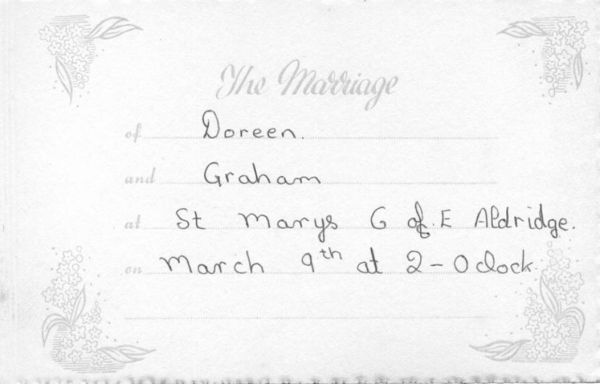 The Marriage
of Doreen.
and Graham
at St Marys C of E Aldridge.
on March 9th at 2-O clock